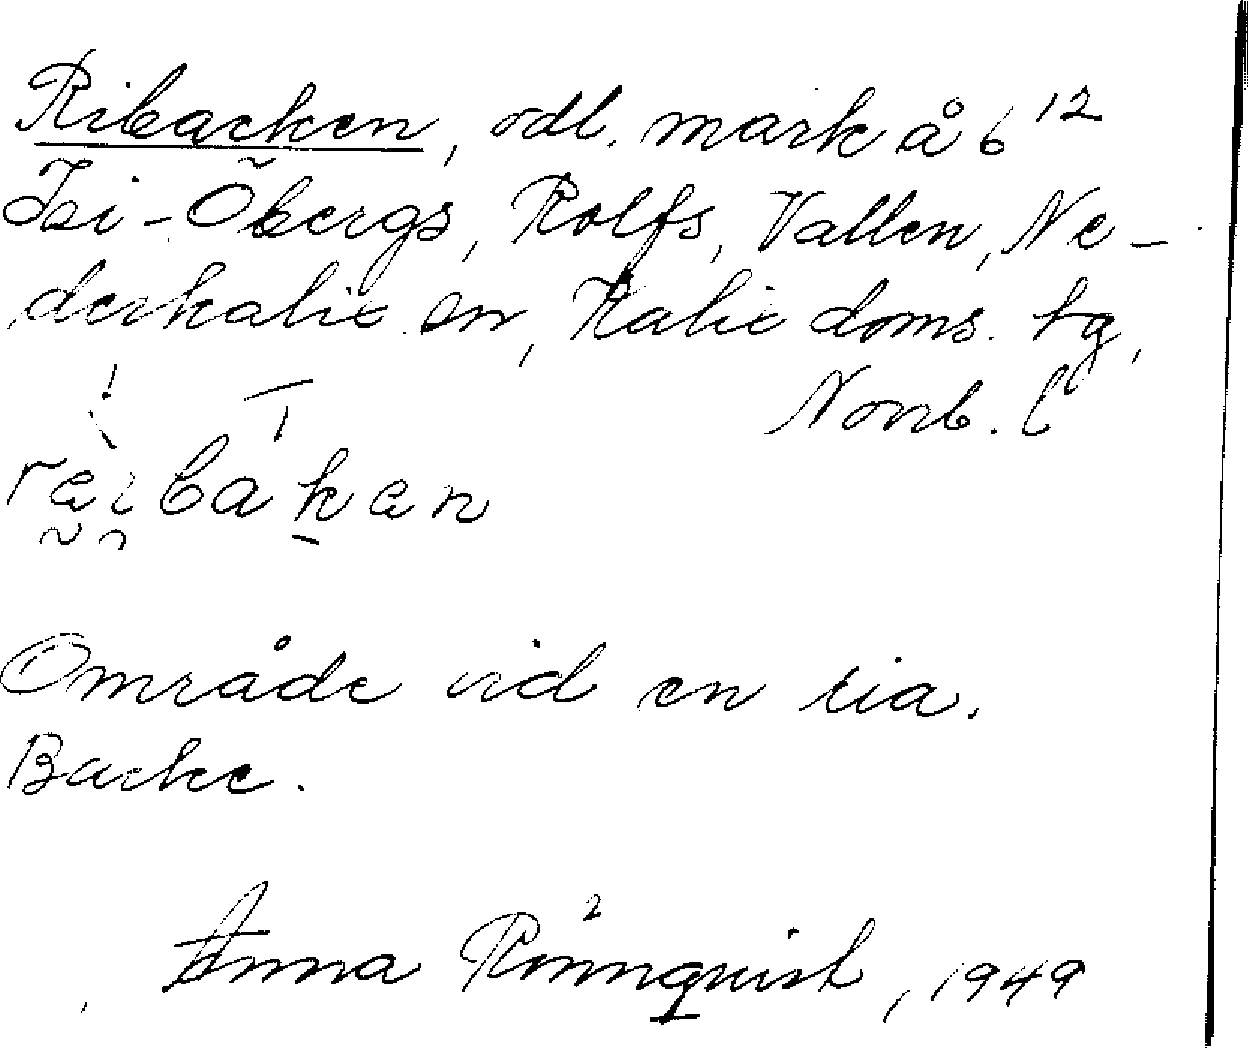 Ribacken, odl. mark å 6 12
Isi-Öbergs, Rolfs, Vallen, Ne-
derkalix sn, Kalix doms. tg,
Norrb. l
ręi bakan
Område vid en ria.
Backe.
Anna Rönnqvist, 1949